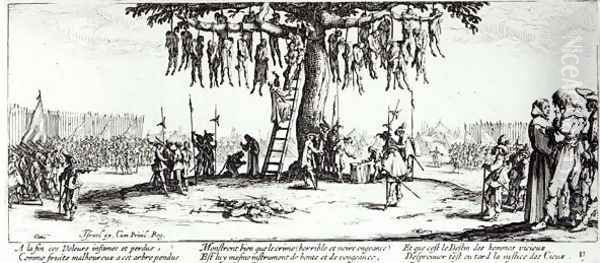 Israel ex. Cum Privil. Reg.
A la fin ces Voleurs infames et perdus,
Comme fruits malheureux a cet arbre pendus
Monstrent bien que le crime (horrible et noire engeance)
Est luy mesme instrument de honte et de vengeance,
Et que c'est le Destin des hommes vicieux
D'esprouver tost ou tard la justice des Cieux.